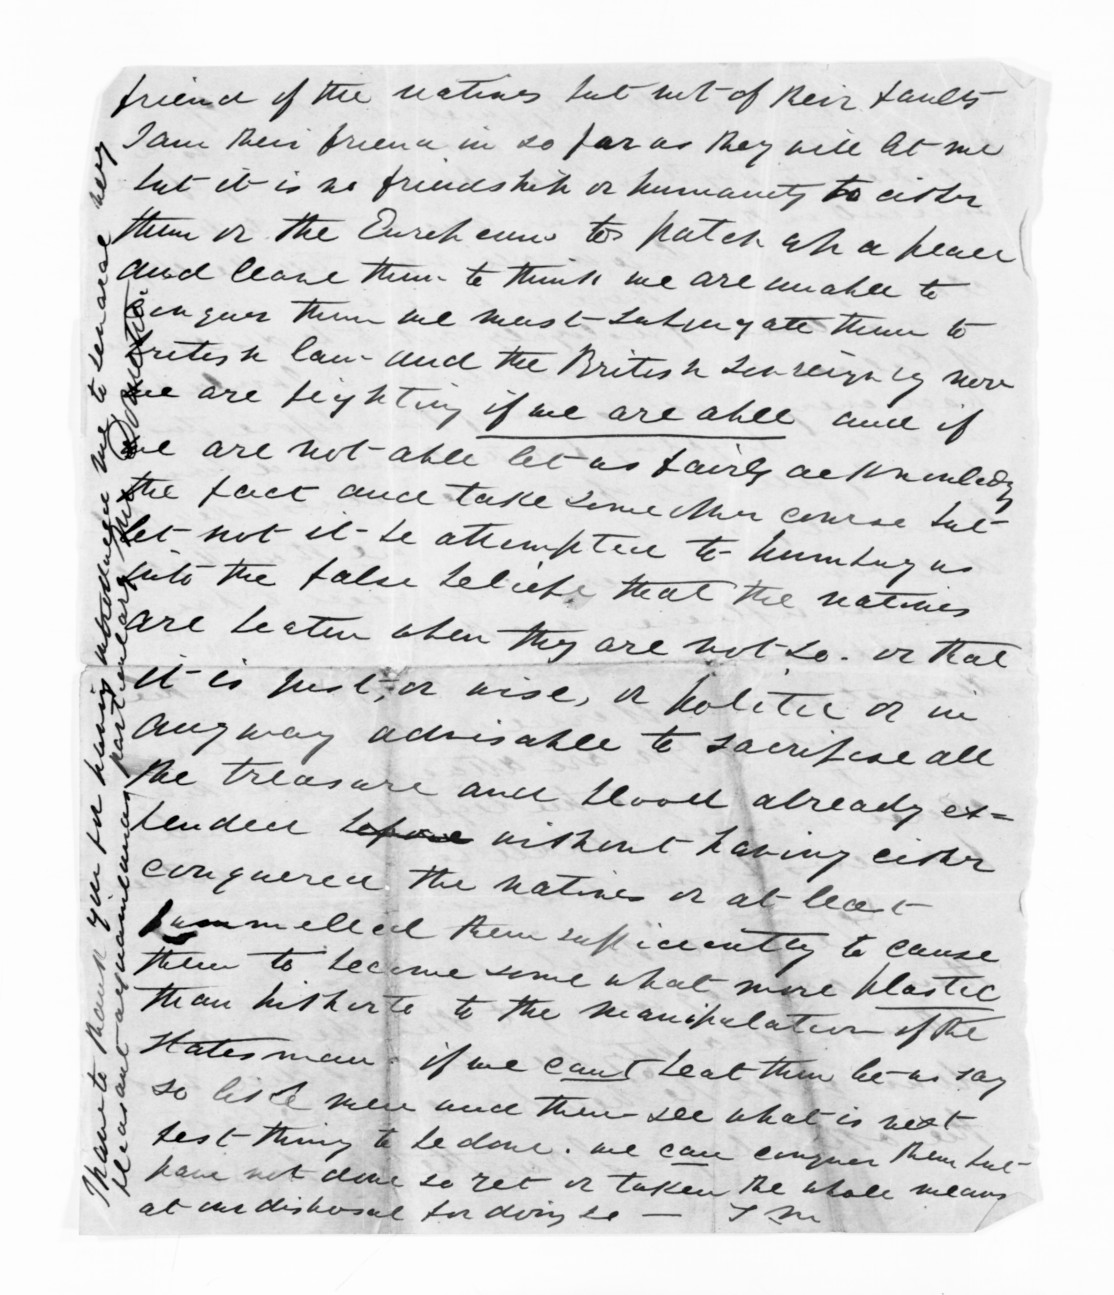 friend of the natives but not of their faults
I am their friend in so far as they will let me
but it is no friendship or humanity to either
them or the Europeans to patch up a peace
and leave them to think we are unable to
conquer them we must subjugate them to
British law and the British Sovereignty now
we are fighting if we are able and if
we are not able let us fairly acknowledge
the fact and take some other course but
let not it be attempted to humbug us
into the false belief that the natives
are beaten when they are not so. or that
it is just, or wise, or politic or in
anyway advisable to sacrifise all
the treasure and blood already ex=
pended before without having either
conquered the natives or at least
pummelled them sufficiently to cause
them to become some what more plastic
than hitherto to the manipulation of the
Statesman if we cant beat them let us say
so like men and then see what is next
best thing to be done. we can conquer them but
have not done so yet or taken the whole means
at our disposal for doing so —
I have to thank you for having introduced me to several very
pleasant acquaintances particularly